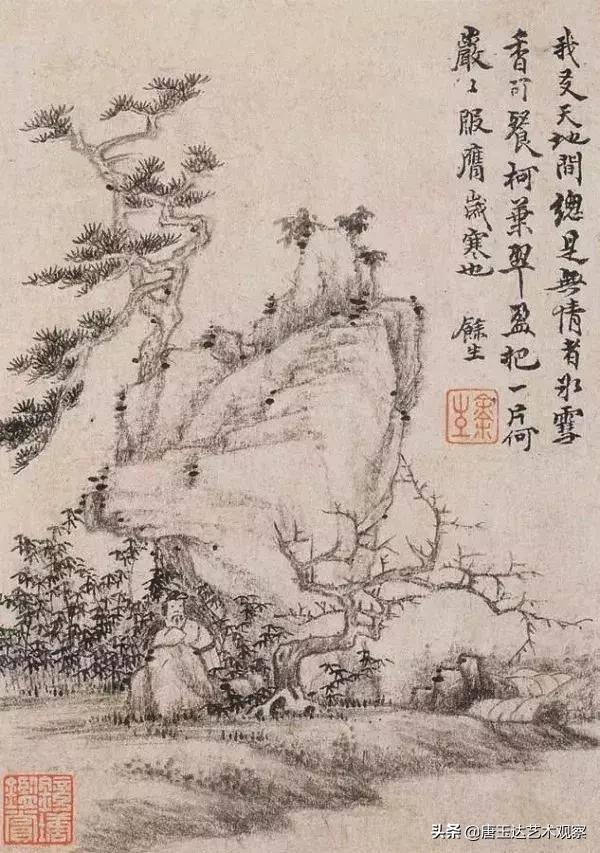 我友天地間總是無情者冰雪
香可餐柯葉翠盈把一片何
嚴〻服膺歲寒也
餘生
头条 @唐玉达艺术观察